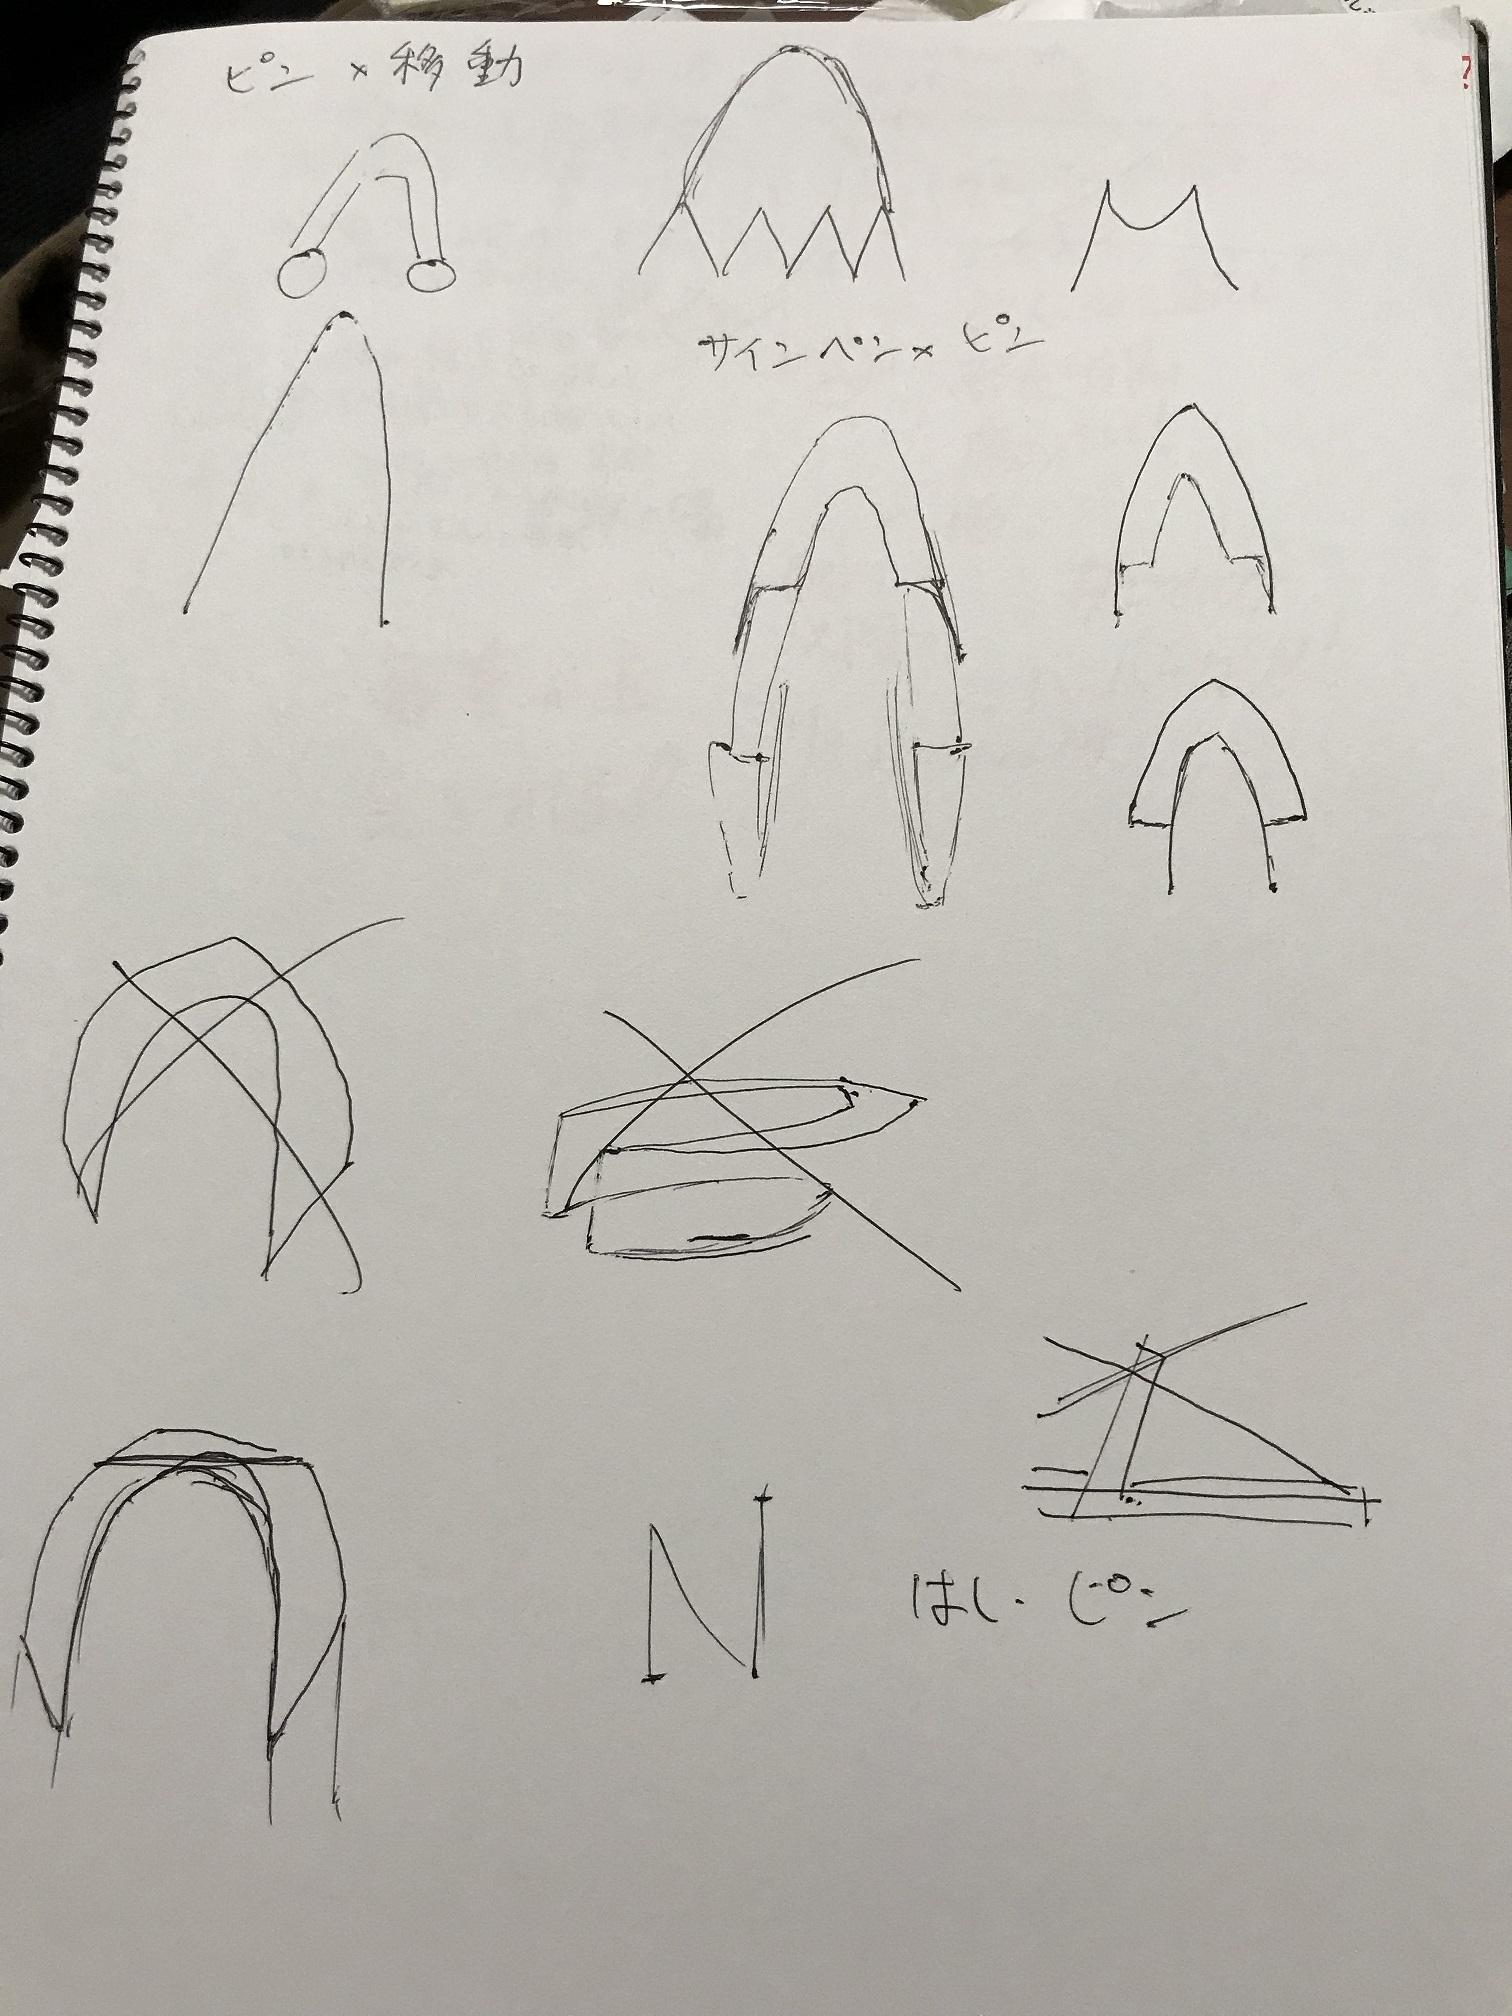 ピン × 移動
サインペン × ピン
はし・ピン